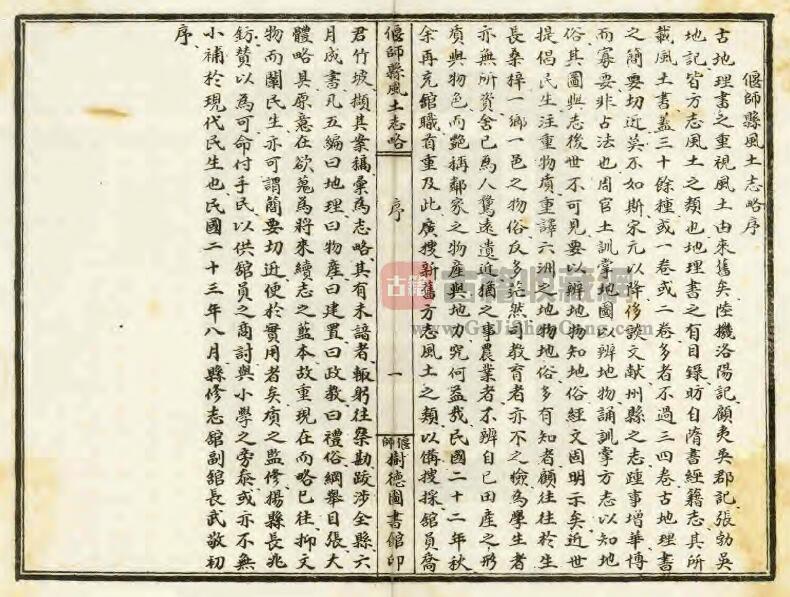 偃師縣風土志略序
古地理書之重視風土由來舊矣陸機洛陽記顧夷吳郡記張勃吳
地記皆方志風土之類也地理書之有目錄昉自隋書經籍志其所
載風土書蓋三十餘種或一卷或二卷多者不過三四卷古地理書
之簡要切近莫不如斯宋元以降侈談文献州縣之志踵事增華博
而寡要非古法也周官土訓掌地圖以辨地物誦訓掌方志以知地
俗其圖與志後世不可見要以辨地物知地俗經文固明示矣近世
提倡民生注重物質重譯六洲之地物地俗多有知者顧往往於生
長桑梓一鄉一邑之物俗反多茫然司教育者亦不之檢為學生者
亦無所資舍己為人騖遠遺近猶之事農業者不辨自己田產之形
質與物色而艷稱鄰家之物產與地力究何益哉民國二十二年秋
余再充舘職首重及此廣搜新舊方志風土之類以備搜採舘員喬
偃師縣風土志略
序
一
偃師樹德圖書舘印
君竹坡擷其案稿彙為志略其有未諳者輒躬往查勘跋涉全縣六
月成書凡五編曰地理曰物產曰建置曰政教曰禮俗綱舉目張大
體略具原意在欲蒐為將來續志之藍本故重現在而略已往抑文
物而闡民生亦可謂簡要切近便於實用者矣質之監修楊縣長兆
鈁賛以為可命付手民以供舘員之商討與小學之旁泰或亦不無
小補於現代民生也民國二十三年八月縣修志舘副舘長武敬初
序
古籍收藏網
www.GuJiShouCang.com